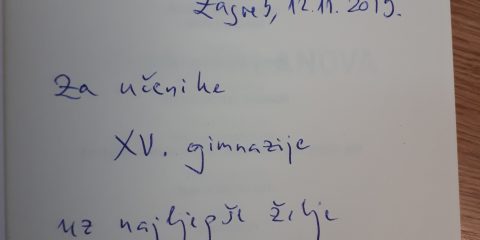 Zagreb, 12.11.2019.
Za učenike
XV. gimnazije
uz najljepše želje